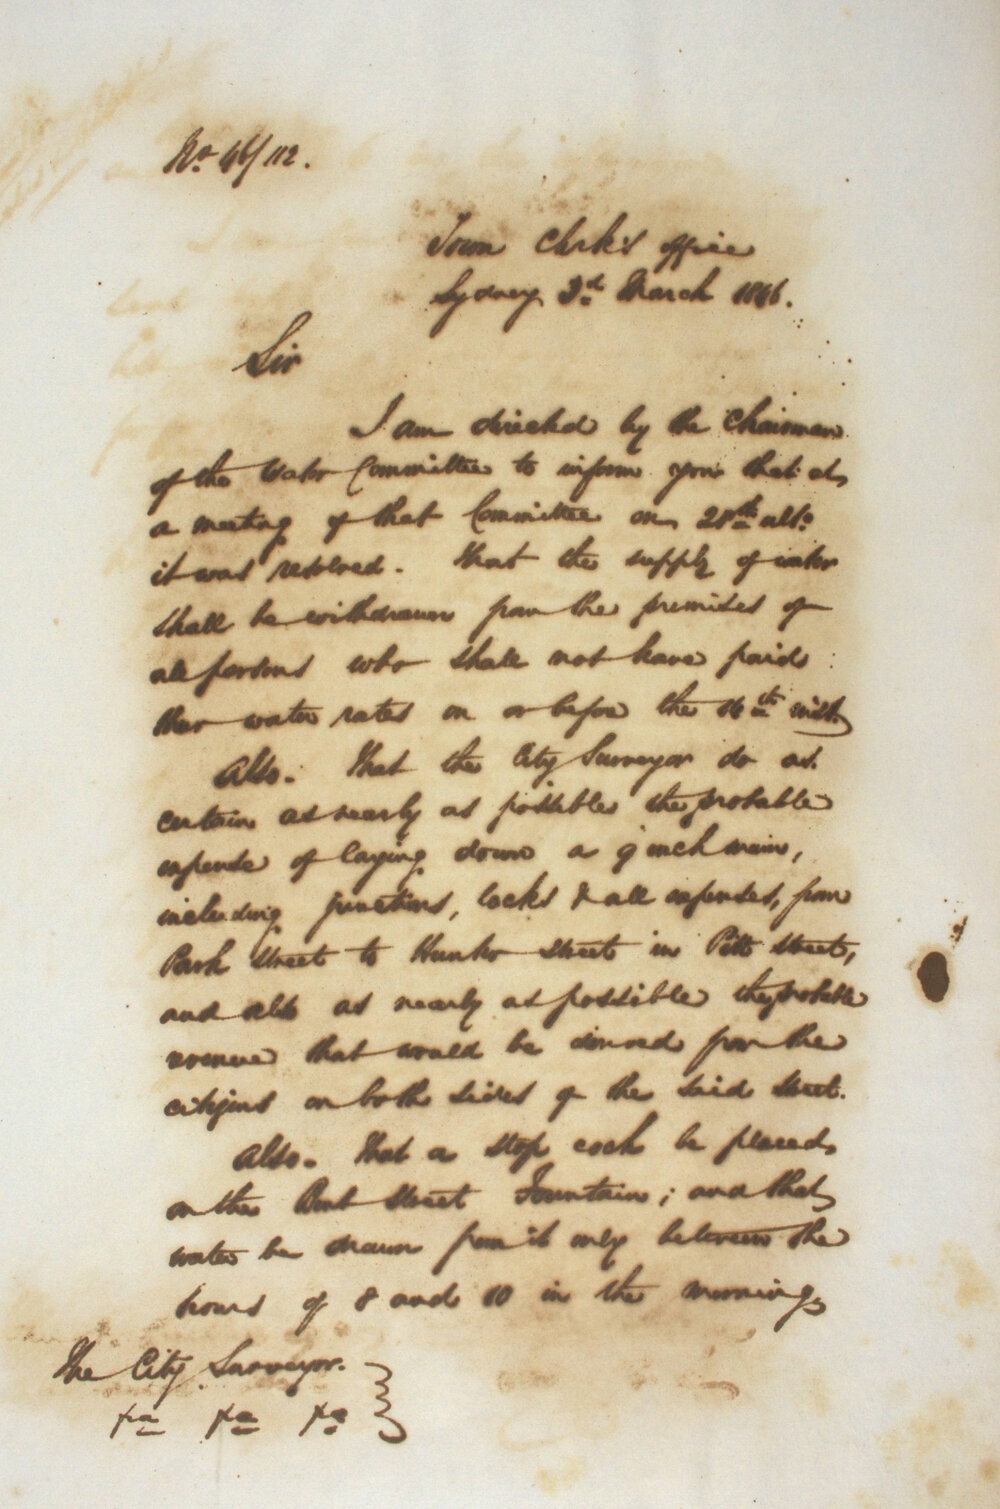 No. 46/112.
Town Clerk's Office
Sydney 3rd March 1846.
Sir
I am directed by the Chairman
of the Water Committee to inform you that at
a meeting of that Committee on 28th ulto.
it was resolved. That the supply of water
shall be withdrawn from the premises of
all persons who shall not have paid
their water rates on or before the 16th inst.
Also. That the City Surveyor do as
certain as nearly as possible the probable
expense of laying down a 9 inch main,
including junctions, locks & all expenses, from
Park Street to Hunter Street in Pitt Street,
and also as nearly as possible the probable
revenue that would be derived from the
citizens on both sides of the said Street.
Also. That a stop cock be placed
on the Bent Street Fountain; and that
water be drawn from it only between the
hours of 8 and 10 in the morning
The City Surveyor.